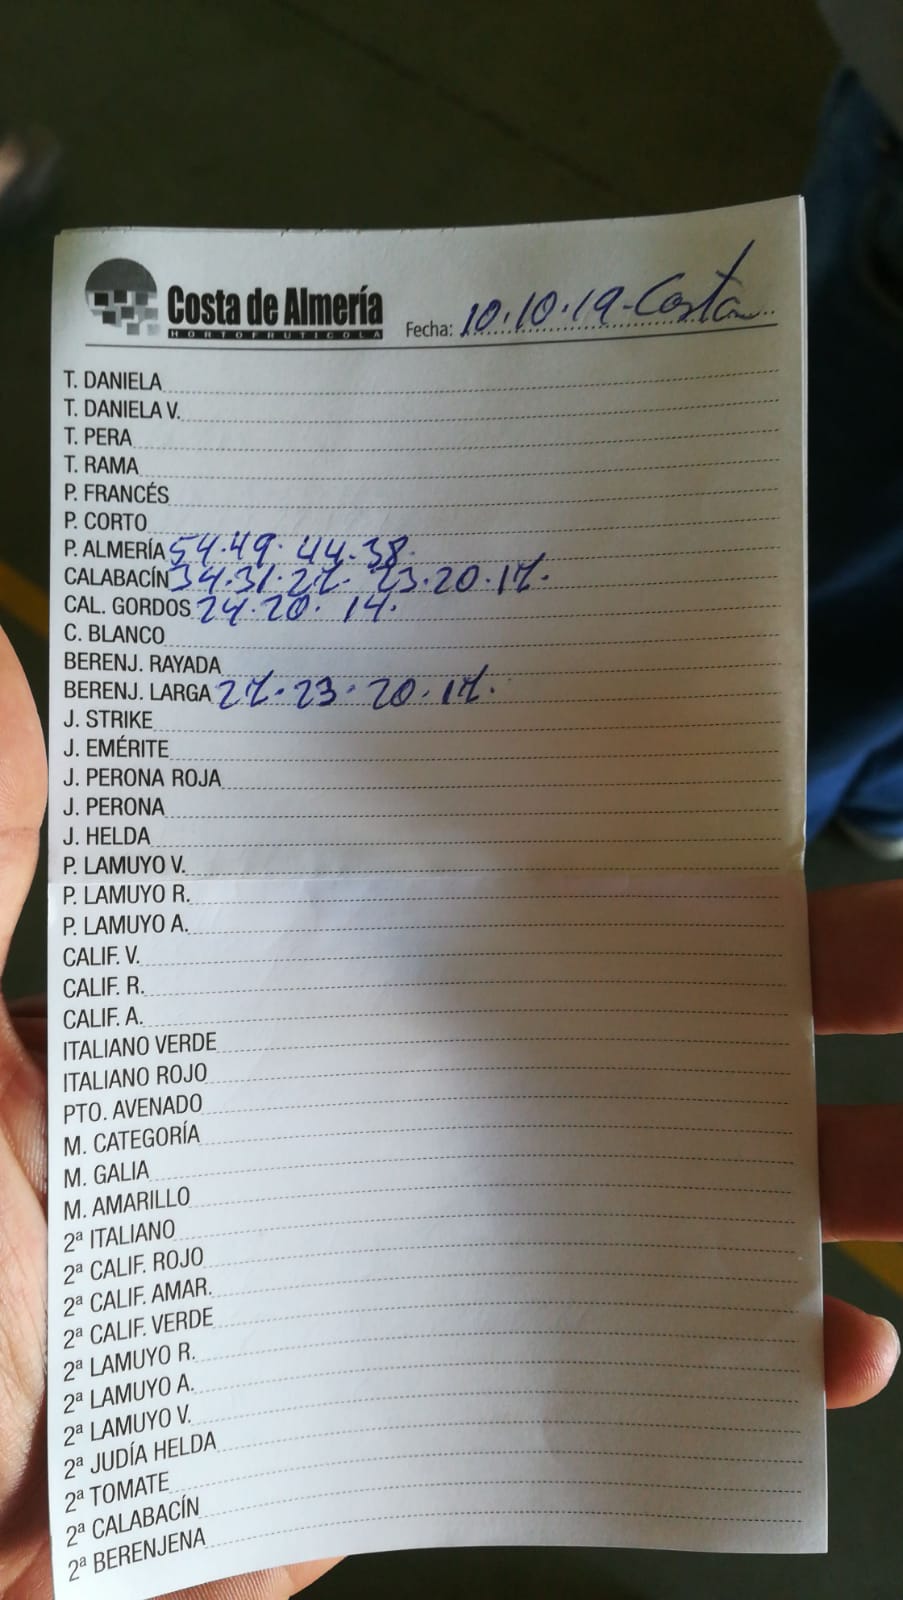 Costa de Almería
HORTOFRUTICOLA
Fecha: 10.10.19-Costa
T. DANIELA
T. DANIELA V.
T. PERA
T. RAMA
P. FRANCÉS
P. CORTO
P. ALMERÍA 54.49. 44.38.
CALABACÍN 34.31.27. 23.20.17.
CAL. GORDOS 24.20. 14.
C. BLANCO
BERENJ. RAYADA
BERENJ. LARGA 27.23.20.17.
J. STRIKE
J. EMÉRITE
J. PERONA ROJA
J. PERONA
J. HELDA
P. LAMUYO V.
P. LAMUYO R.
P. LAMUYO A.
CALIF. V.
CALIF. R.
CALIF. A.
ITALIANO VERDE
ITALIANO ROJO
PTO. AVENADO
M. CATEGORÍA
M. GALIA
M. AMARILLO
2ª ITALIANO
2ª CALIF. ROJO
2ª CALIF. AMAR.
2ª CALIF. VERDE
2ª LAMUYO R.
2ª LAMUYO A.
2ª LAMUYO V.
2ª JUDÍA HELDA
2ª TOMATE
2ª CALABACÍN
2ª BERENJENA